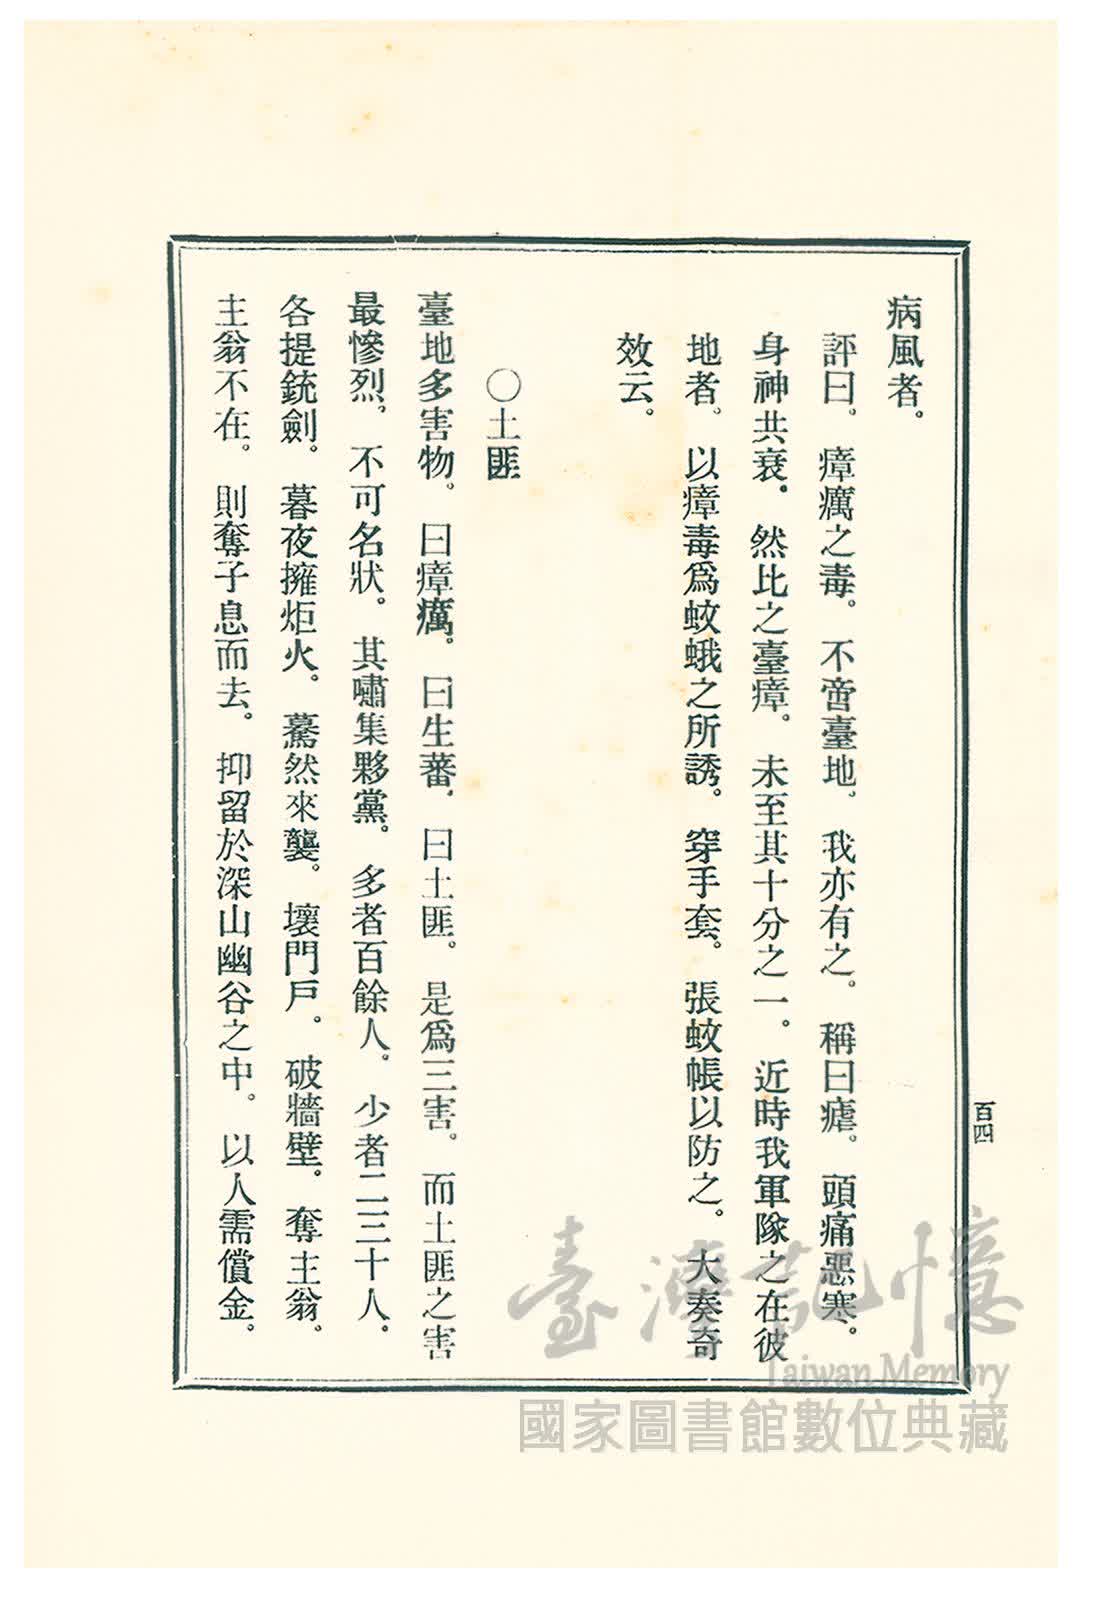 病風者。
評曰。瘴癘之毒。不啻臺地。我亦有之。稱曰瘧。頭痛惡寒。
身神共衰。然比之臺瘴。未至其十分之一。近時我軍隊之在彼
地者。以瘴毒爲蚊蛾之所誘。穿手套。張蚊帳以防之。大奏奇
效云。
〇土匪
臺地多害物。曰瘴癘。曰生蕃。曰土匪。是爲三害。而土匪之害
最慘烈。不可名狀。其嘯集夥黨。多者百餘人。少者二三十人。
各提銃劍。暮夜擁炬火。驀然來襲。壞門戶。破牆壁。奪主翁。
主翁不在。則奪子息而去。抑留於深山幽谷之中。以人需償金。
百四
臺灣記憶
Taiwan Memory
國家圖書館數位典藏